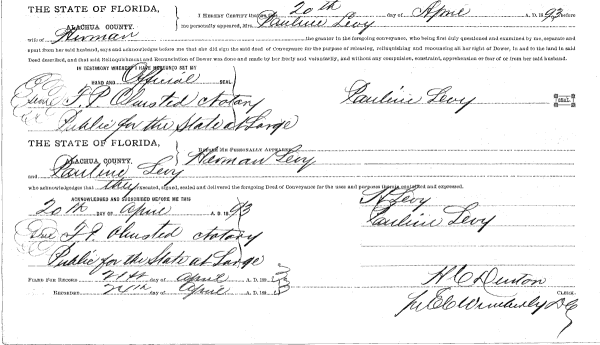 THE STATE OF FLORIDA,
ALACHUA COUNTY.
I HEREBY CERTIFY That on this 20th day of April A. D. 1893 before
me personally appeared, Mrs. Pauline Levy
wife of Herman the grantor in the foregoing conveyance, who being first duly questioned and examined by me, separate and
apart from her said husband, says and acknowledges before me that she did sign the said deed of Conveyance for the purpose of releasing, relinquishing and renouncing all her right of Dower, in and to the land in said
Deed described, and that said Relinquishment and Renunciation of Dower was done and made by her freely and voluntarily, and without any compulsion, constraint, apprehension or fear of or from her said husband.
IN TESTIMONY WHEREOF I HAVE HEREUNTO SET MY
HAND AND Official SEAL
Seal T. P. Olmsted Notary
Pauline Levy SEAL
Public for the State at Large
THE STATE OF FLORIDA,
ALACHUA COUNTY.
BEFORE ME PERSONALLY APPEARED Herman Levy
and Pauline Levy
who acknowledges that they created, signed, sealed and delivered the foregoing Deed of Conveyance for the uses and purposes therein contained and expressed,
ACKNOWLEDGED AND SUBSCRIBED BEFORE ME THIS
H Levy
20th DAY OF April A. D. 1893
Pauline Levy
Seal T. P. Olmsted Notary
Public for the State at Large
FILED FOR RECORD 21st day of April A. D. 1893
RECORDED day of April A. D. 1893
H C Denton
CLERK.
per E C Wimberly D C